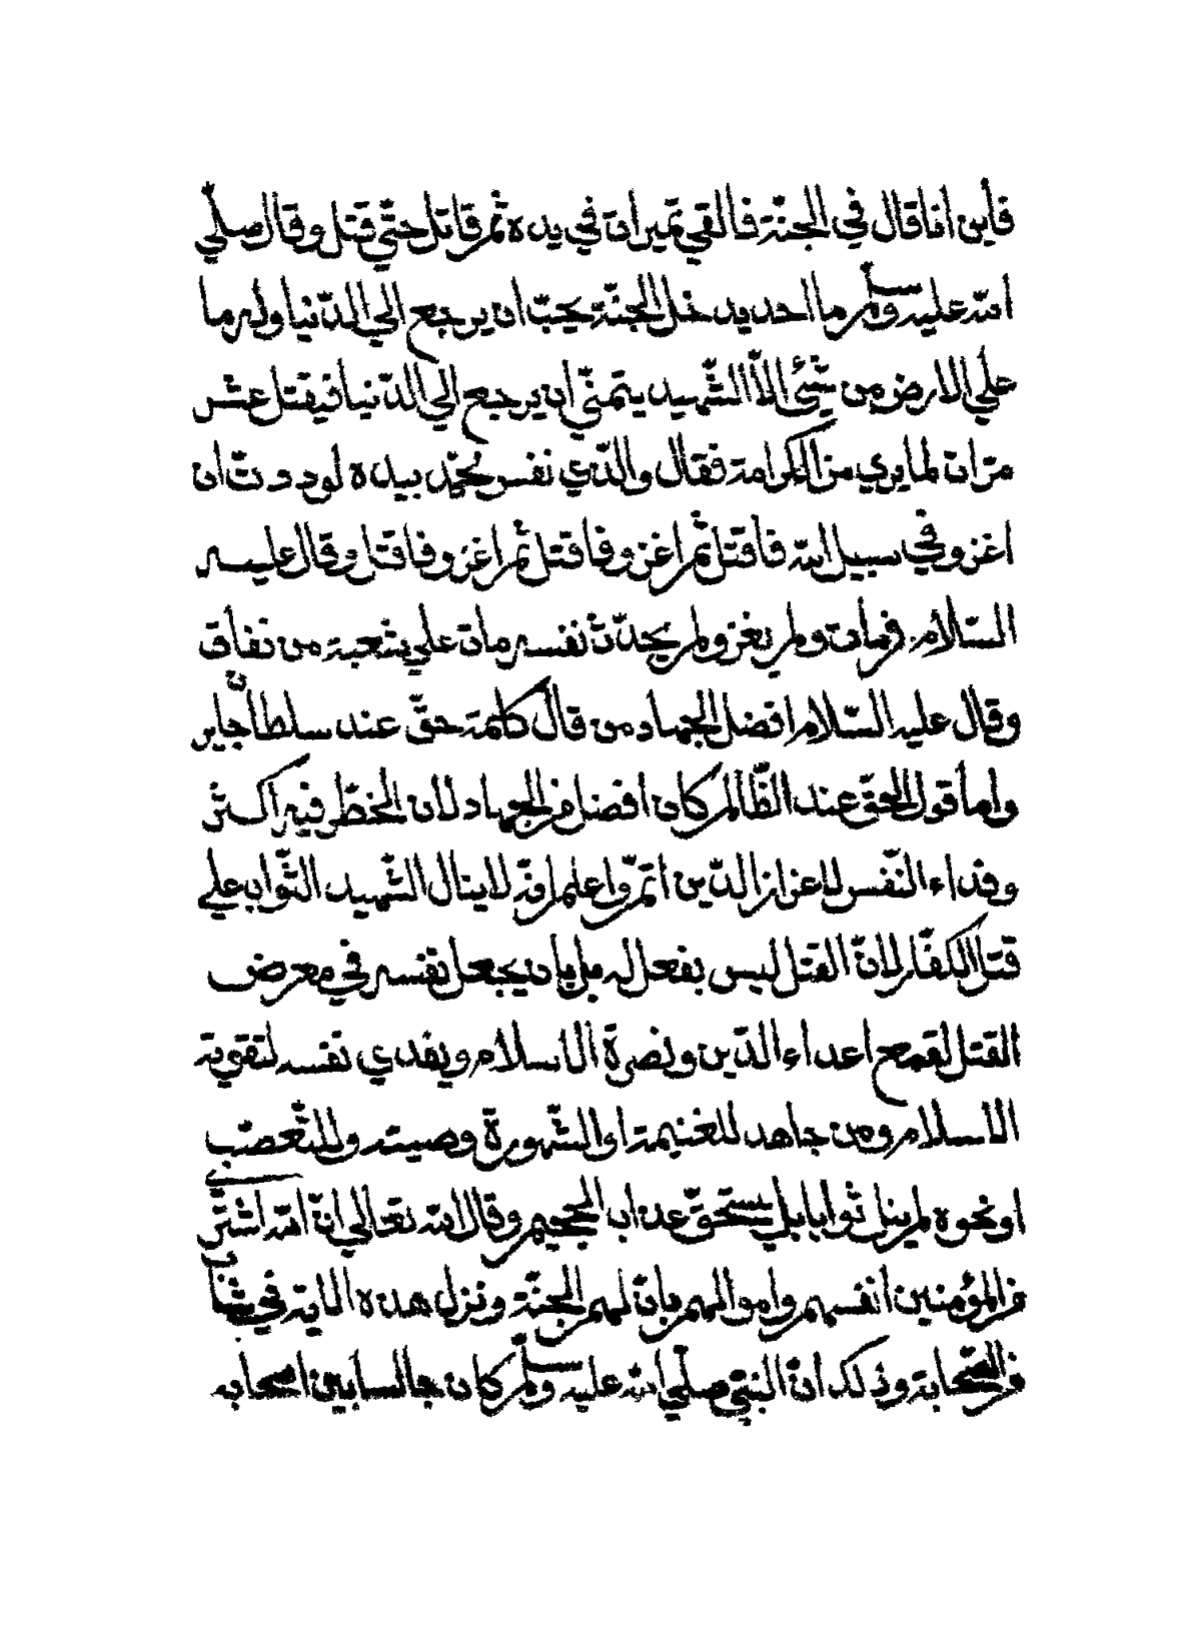 فأين انا قال في الجنّة فالقي تميرات في يده ثم قاتل حتّي قتل وقال صلّي
الله عليه وسلم ما احد يدخل الجنّة يحبّ ان يرجع الي الدّنيا وله ما
علي الارض من شيئ الاّ الشّهيد يتمنّي ان يرجع الي الدّنيا فيقتل عشر
مرّات لما يري من الكرامة فقال والّذي نفس محمّد بيده لوددتّ ان
اغزو في سبيل الله فاقتل ثم اغزو فاقتل ثم اغزو فاقتل وقال عليه
السّلام من مات ولم يغز ولم يحدّث نفسه مات علي شعبة من نفاق
وقال عليه السّلام افضل الجهاد من قال كلمة حقّ عند سلطان جاير
وامأ قول الحقّ عند الظّالم كان افضل من الجهاد لان الخطر فيه اكثر
وفداء النّفس لاعزاز الدّين اتمّ واعلم انّه لا ينال الشّهيد الثّواب علي
قتل الكفّار لانّ القتل ليس بفعل له بل بان يجعل نفسه في معرض
القتل لقمع اعداء الدّين ونصرة الاسلام ويفدي نفسه لتقوية
الاسلام ومن جاهد للغنيمة او الشّهورة وصيته وللتّعصّب
او نحوه لم ينل ثوابا بل يستحقّ عذاب الجحيم وقال الله تعالي انّ الله اشتري
من المؤمنين أنفسهم واموالهم بانّ لهم الجنّة ونزل هذه الاية في شان
من الصّحابة وذلك انّ النبيّ صلّي الله عليه وسلم كان جالسا بين اصحابه